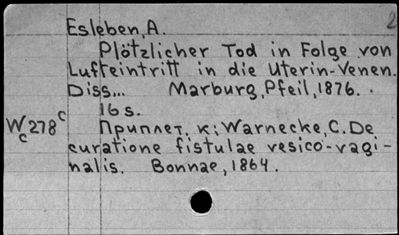 2
Esleben, A.
Plötzlicher Tod in Folge von
Lufteintritt in die Uterin-Venen.
Diss... Marburg, Pfeil, 1876.
16 s.
Wc 278c
Приплет. к: Warnecke, C. De
curatione fistulae vesico-vagi-
nalis. Bonnae, 1864.